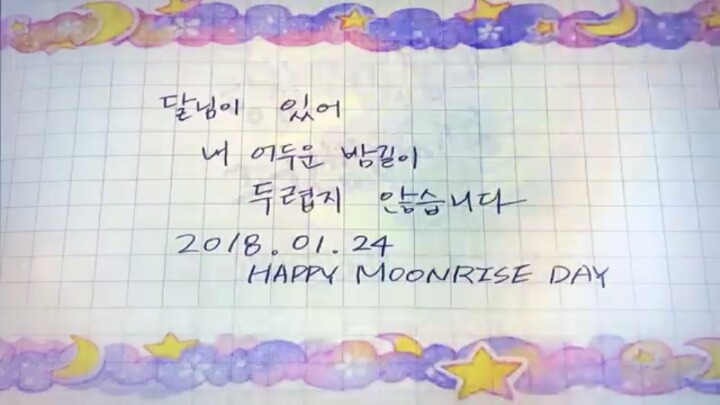 달님이 있어
내 어두운 밤길이
두렵지 않습니다
2018.01.24
HAPPY MOONRISE DAY